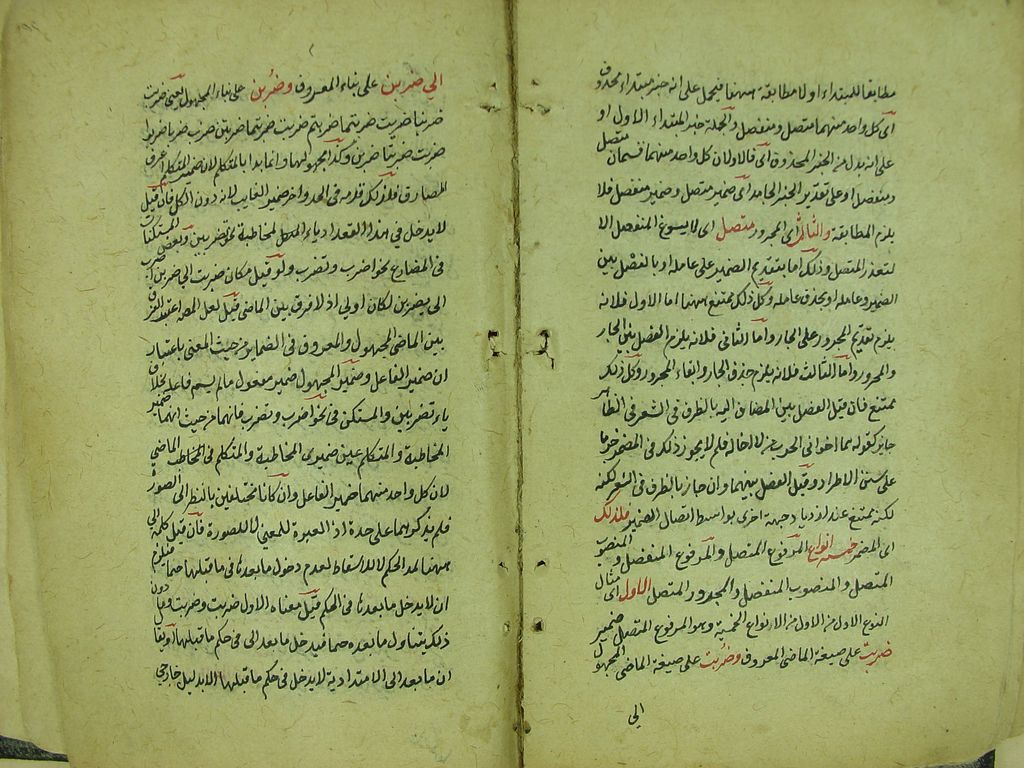 مطابقا للمبتداء اولا مطابقة ههنا فيحمل على انه خبر مبتداء محذوف
اى كل واحد منهما متصل ومنفصل والجملة خبر المبتداء الاول او
على انه بدل من الخبر المحذوف اى فالاولان كل واحد منهما قسمان متصل
ومنفصل او على تقدير الخبر الجامد اى ضمير متصل وضمير منفصل فلا
يلزم المطابقة والثالث اى المجرور متصل اى لا يسوغ المنفصل الا
لتعذر المتصل وذلك اما بتقديم الضمير على عامله او بالفصل بين
الضمير وعامله او بحذف عامله وكل ذلك ممتنع ههنا اما الاول فلانه
يلزم تقديم المجرور على الجار واما الثانى فلانه يلزم الفصل بين الجار
والمجرور واما الثالث فلانه يلزم حذف الجار وابقاء المجرور وكل ذلك
ممتنع فان قيل الفصل بين المضاف اليه بالظرف فى الشعر
جايز كقوله هما اخوا فى الحرب من لا اخا له فلم لا يجوز ذلك فى المضمر
على سنن الاطراد وقيل الفصل بينهما وان جاز بالظرف فى الشعر لكنه
لكنه ممتنع عند ازدياد جهة اخرى بواسطة اتصال الضمير فلذلك
اى المضمر خمسة انواع المرفوع المتصل والمرفوع المنفصل والمنصوب
المتصل والمنصوب المنفصل والمجرور المتصل الاول اى مثال
النوع الاول من الاول من الانواع الخمسة وهو المرفوع المتصل ضمير
ضربت على صيغة الماضى المعروف وضربت على صيغة الماضى المجهول
الى
الى ضربن على بناء المعروف وضربن على بناء المجهول يعنى ضربت
ضربنا ضربت ضربتما ضربتم ضربت ضربتما ضربتن ضرب ضربا ضربوا
ضربت ضربتا ضربن وكذا مجهولها وانما بدا بالمتكلم لان ضمير المتكلم اعرف
المعارف فلذلك قدمه فى الحد واخر ضمير الغايب لانه دون الكل فان قيل
لا يدخل فى هذا التعداد ياء المخاطبة نحو تضربين وبعض المستكنات
فى المضارع نحو اضرب وتضرب ولو قيل مكان ضربت الى ضربن اضرب
الى يضربن لكان اولى اذ لا فرق بين الماضى قيل لعل المصه اعتبر الفرق
بين الماضى المجهول والمعروف فى الضماير من حيث المعنى باعتبار
ان ضمير الفاعل وضمير المجهول ضمير مفعول ما لم يسم فاعله بخلاف
ياء تضربين والمستكن فى نحو اضرب وتضرب فانهما من حيث انهما ضمير
المخاطبة والمتكلم عين ضميرى المخاطبة والمتكلم فى الماضى
لان كل واحد منهما ضمير الفاعل وان كانا مختلفين بالنظر الى الصورة
فلم يذكرهما على حدة اذ العبرة للمعنى لا للصورة فان قيل كلمة الى
ههنا لمد الحكم لا للاسقاط لعدم دخول ما بعدها فى ما قبلها فيلزم
ان لا يدخل ما بعدها فى الحكم قيل معناه الاول ضربت وضربت وما دون
ذلك يتناول ما بعده فيدخل ما بعد الى فى حكم ما قبلها او يقال
ان ما بعد الى الامتدادية لا يدخل فى حكم ما قبلها الا بدليل خارجى